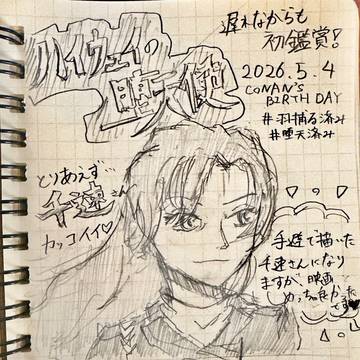 ハイウェイの
堕天使
遅れながらも
初鑑賞!
2026.5.4
CONAN'S
BIRTH DAY
#羽捕る済み
#堕天済み
とりあえず…
千速さん
カッコイイ♡
手遊で描いた
千速さんになり
ますが、映画
めっちゃ良かった
です♥